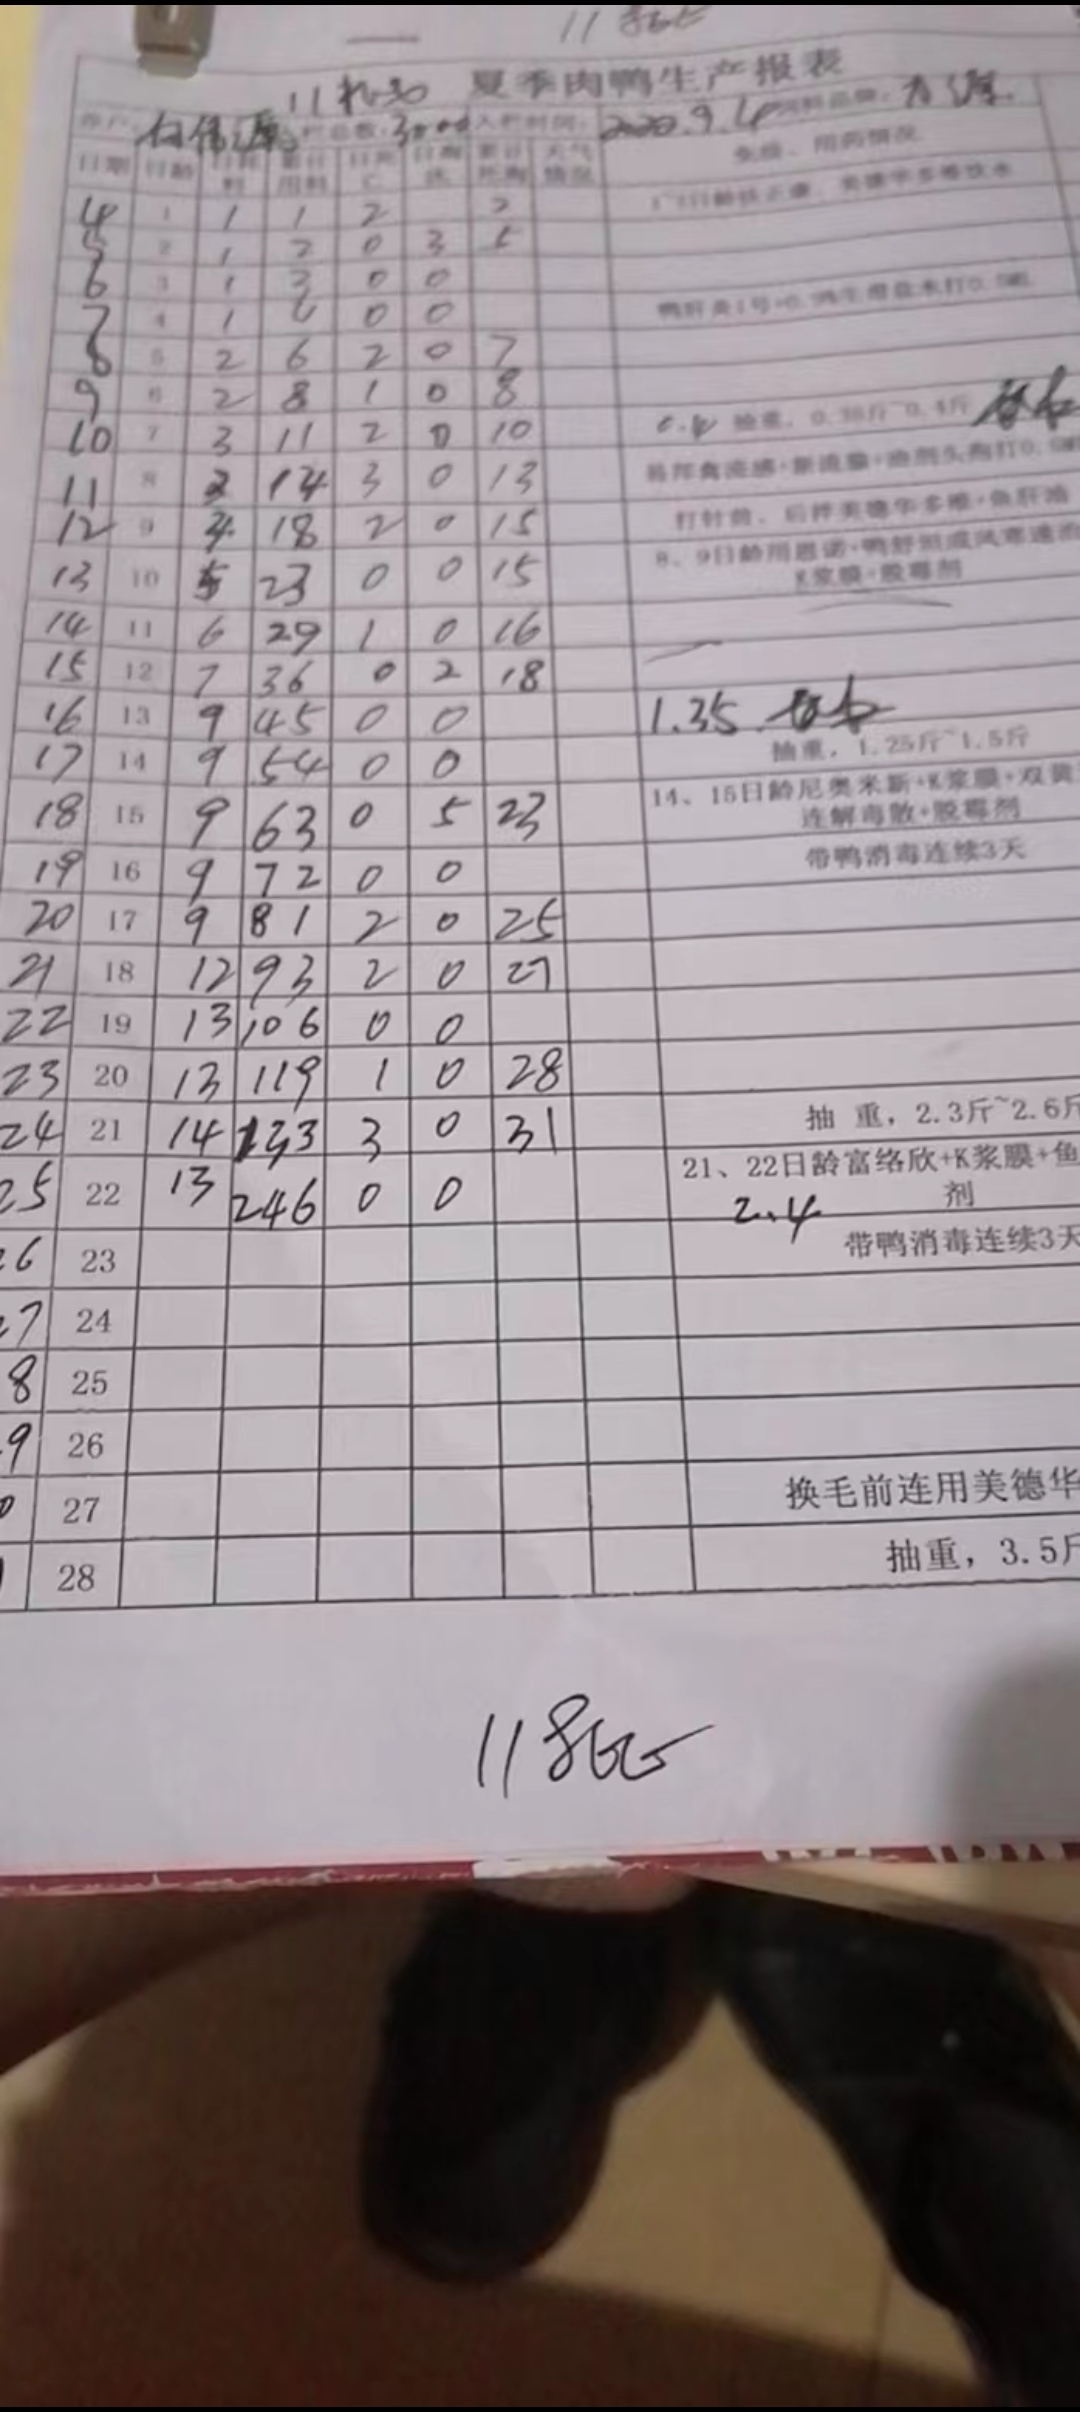 夏季肉鸭生产报表
3000 入栏时间: 2020.9.4 饲料品牌:
日期 日龄 日耗料 累计用料 日死亡 日淘汰 累计死淘 天气情况 免疫、用药情况
4 1 1 1 2 2
5 2 1 2 0 3 5
6 3 1 3 0 0
7 4 1 4 0 0
8 5 2 6 2 0 7
9 6 2 8 1 0 8
10 7 3 11 2 0 10 0.4 抽重，0.35斤~0.4斤
11 8 3 14 3 0 13
12 9 4 18 2 0 15 打针前、后拌美德华多维+鱼肝油
13 10 5 23 0 0 15 8、9日龄用
K浆膜+脱霉剂
14 11 6 29 1 0 16
15 12 7 36 0 2 18
16 13 9 45 0 0 1.35
17 14 9 54 0 0 抽重，1.25斤~1.5斤
18 15 9 63 0 5 23 14、15日龄尼奥米新+K浆膜+双黄
连解毒散+脱霉剂
19 16 9 72 0 0 带鸭消毒连续3天
20 17 9 81 2 0 25
21 18 12 93 2 0 27
22 19 13 106 0 0
23 20 13 119 1 0 28
24 21 14 133 3 0 31 抽 重，2.3斤~2.6斤
25 22 13 246 0 0 21、22日龄富络欣+K浆膜+鱼
剂
2.4
26 23 带鸭消毒连续3天
27 24
8 25
9 26
0 27 换毛前连用美德华
28 抽重，3.5斤
118